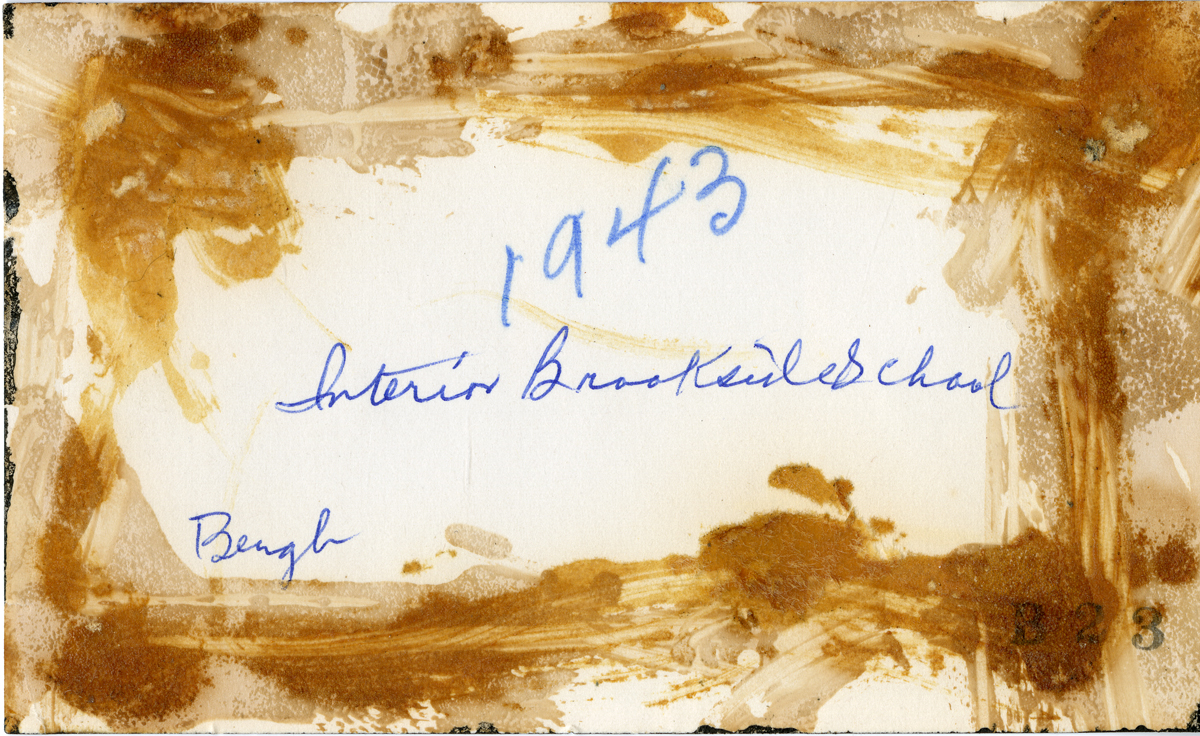 1943
Interior Brookside School
Bengh
B 2 3